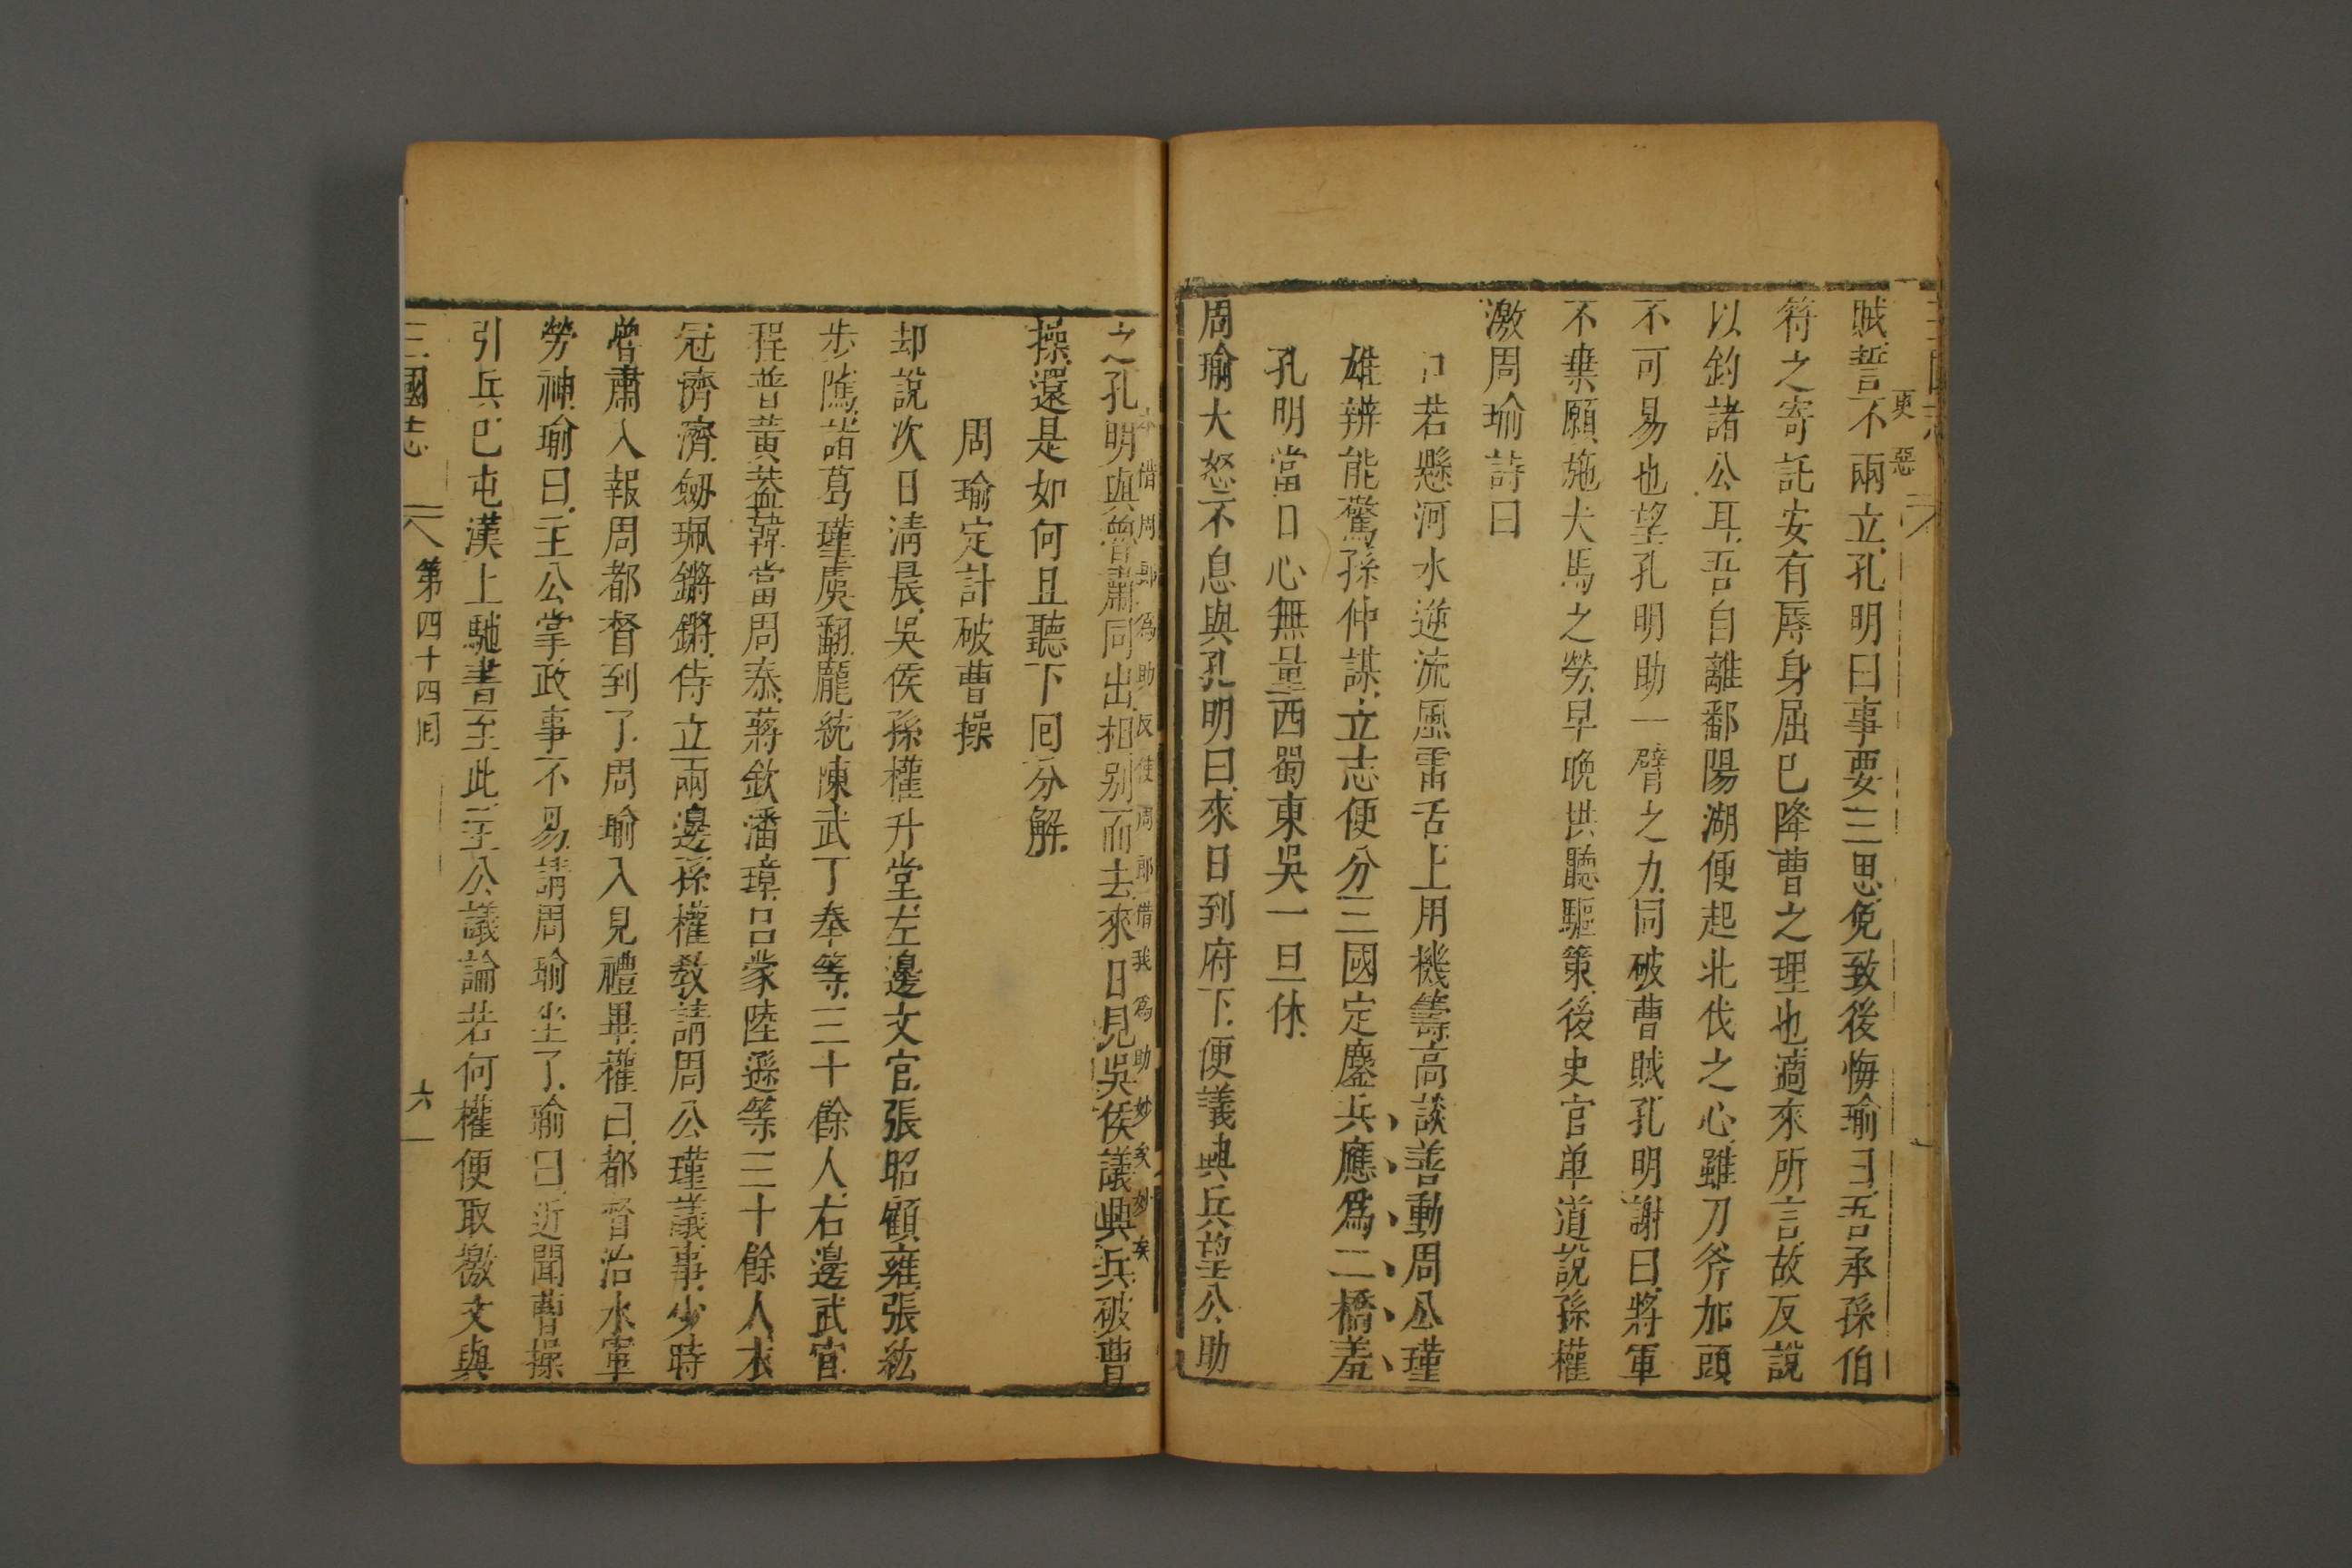 更惡
賊誓不兩立孔明曰事要三思免致後悔瑜曰吾承孫伯
符之寄託安有辱身屈已降曹之理也適來所言故反說
以釣諸公耳吾自離鄱陽湖便起北伐之心雖刀斧加頭
不可易也望孔明助一臂之力同破曹賊孔明謝曰將軍
不棄願施犬馬之勞早晚拱聽驅策後史官单道說孫權
激周瑜詩曰
口若懸河水逆流風雷舌上用機籌高談善動周公瑾
雄辨能驚孫仲謀立志便分三國定鏖兵應爲二橋羞
孔明當日心無量西蜀東吳一旦休
周瑜大怒不息與孔明曰來日到府下便議興兵望公助
本借周郎爲助反使周郎借我爲助妙矣妙矣
之孔明與魯肅同出相别而去來日見吳侯議興兵破曹
操還是如何且聽下回分解
周瑜定計破曹操
却說次日清晨吳侯孫權升堂左邊文官張昭顧雍張紘
步隲諸葛瑾虞翻龐統陳武丁奉等三十餘人右邊武官
程普黃蓋韓當周泰蔣欽潘璋吕蒙陸遜等三十餘人衣
冠濟濟劒珮鏘鏘侍立兩邊孫權敎請周公瑾議事少時
魯肅入報周都督到了周瑜入見禮畢權曰都督治水軍
勞神瑜曰主公掌政事不易請周瑜坐了瑜曰近聞曹操
引兵巳屯漢上馳書至此主公議論若何權便取檄文與
三國志 第四十四囘 六